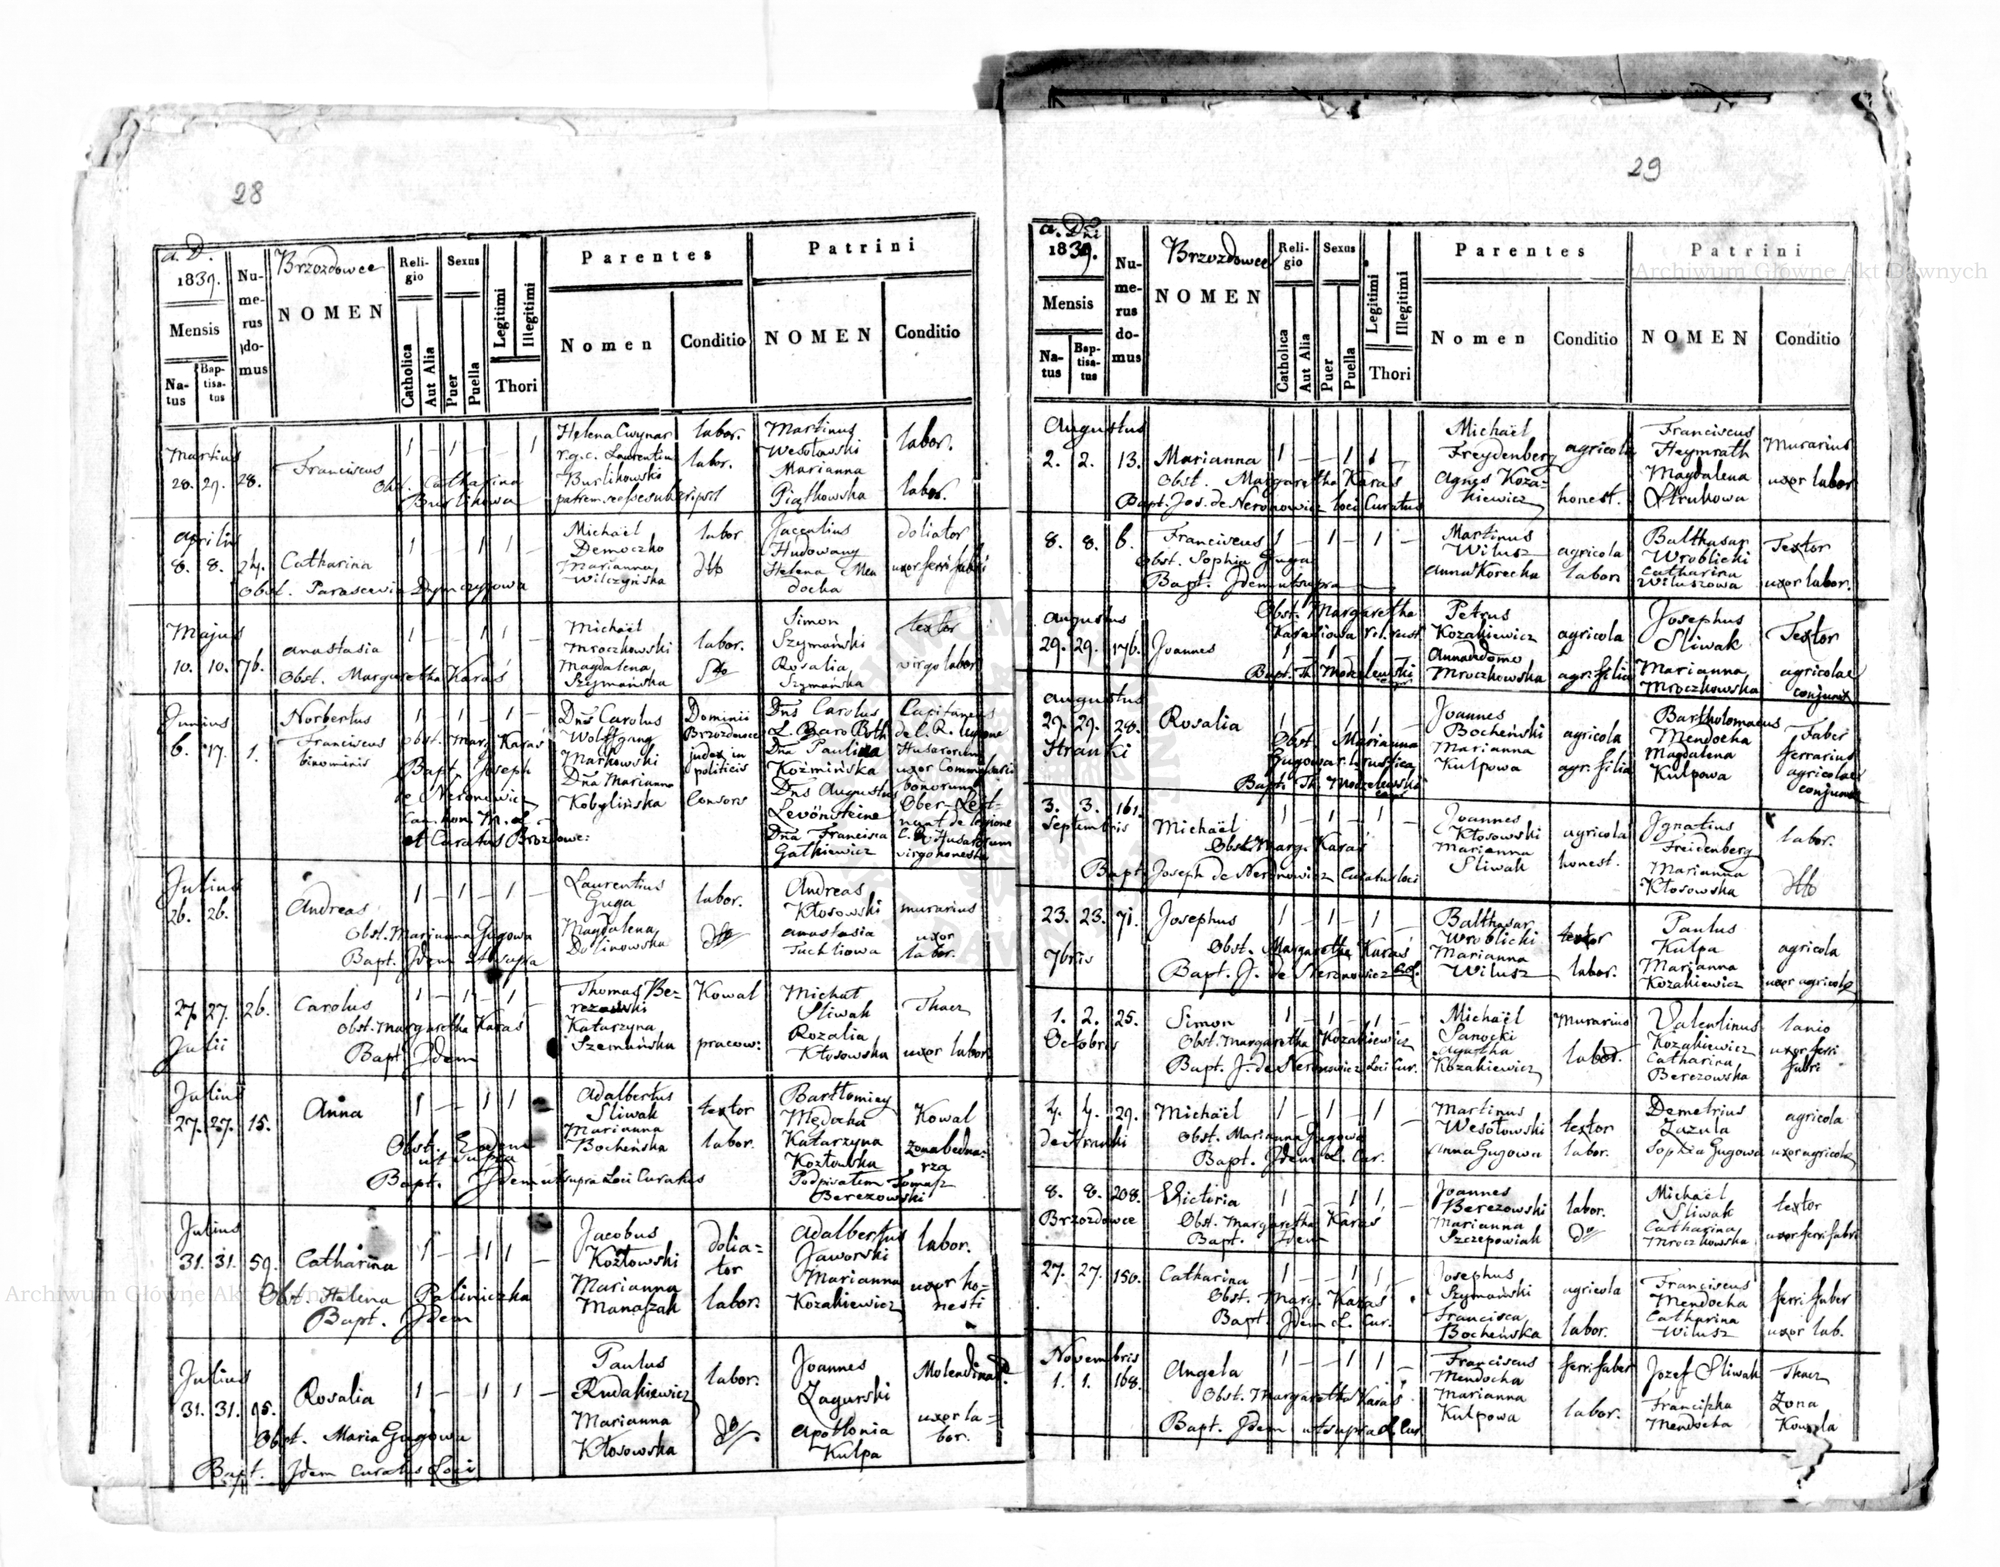 28
a. D.
1839.
Brzozdowce
Mensis
Natus
Baptisatus
Numerus domus
NOMEN
Religio
Catholica
Aut Alia
Sexus
Puer
Puella
Legitimi
Illegitimi
Thori
Parentes
Nomen
Conditio
Patrini
NOMEN
Conditio
Martius
28.
Franciscus
1 – 1 – 1
Obst. Catharina
Burlikowa
Helena Cwynar
r.g.c. Laurentius
Burlikowski
labor.
labor.
Martinus
Wesołowski
Marianna
Piątkowska
labor.
labor.
Aprilis
8. 8. 24.
Catharina
1 – – 1 1 –
Obst. Parascevia
Michaël
Democzko
Marianna
Wilczyńska
labor.
dtto
Hudowany
Helena Men
docha
doliator
uxor ferri fabri
Majus
10. 10. 76.
Anastasia
1 – – 1 1 –
Obst. Margaretha Karaś
Michaël
Mroczkowski
Magdalena
Szymańska
labor.
dtto
Simon
Szymański
Rosalia
Szymańska
textor
virgo labor
Junius
6. 17. 1.
Norbertus
Franciscus
binominis
1 – 1 – 1 –
Obst. Marg. Karaś
Bapt. Joseph
de Neronowicz
Can. hon. M. L.
et Curatus Brozdowc:
Dñs Carolus
Wolffgang
Markowski
Dña Marianna
Kobylińska
Dominii
Brzozdowce
judex in
politicis
Consors
Dñs Carolus
L. Baro Both
Dña Paulina
Koźmińska
Dñs Augustus
Levönsteine
Dña Francisca
Gatkiewicz
Capitaneus
de l. R. legione
Husarorum
uxor Commissarii
bonorum
Ober-Leut-
nant de legione
C. R. Husarorum
virgo honesta
Julius
26. 26.
Andreas
1 – 1 – 1 –
Obst. Marianna Gugowa
Bapt. Idem ut supra
Laurentius
Guga
Magdalena
Dolinowska
labor.
dtto
Andreas
Kłosowski
Anastasia
Tuchliowa
murarius
uxor
labor.
27. 27. 26.
Julii
Carolus
1 – 1 – 1 –
Obst. Margaretha Karaś
Bapt. Idem
Thomas Be-
rezowski
Katarzyna
Szemańska
Kowal
pracow:
Michał
Sliwak
Rozalia
Kłosowska
Tkacz
uxor labor.
Julius
27. 27. 15.
Anna
1 – – 1 1 –
Obst. Eadem
ut supra
Bapt. Idem ut supra Loci Curatus
Adalbertus
Sliwak
Marianna
Bocheńska
textor
labor.
Bartłomiey
Mędocha
Katarzyna
Kozłowska
Podpisałem Tomasz
Berezowski
Kowal
żona bedna-
rza
Julius
31. 31. 59.
Catharina
1 – – 1 1 –
Obst. Helena Paliniczka
Bapt. Idem
Jacobus
Kozłowski
Marianna
Manaszak
dolia=
tor
labor.
Adalbertus
Jaworski
Marianna
Kozakiewicz
labor.
uxor ho-
nesti
Julius
31. 31. 95.
Rosalia
1 – – 1 1 –
Obst. Maria Gugowa
Bapt. Idem Curatus Loci
Paulus
Rudakiewicz
Marianna
Kłosowska
labor.
do
Joannes
Zagurski
Apołłonia
Kulpa
uxor la=
bor.
29
a. Dñi
1839.
Brzozdowce
Mensis
Natus
Baptisatus
Numerus domus
NOMEN
Religio
Catholica
Aut Alia
Sexus
Puer
Puella
Legitimi
Illegitimi
Thori
Parentes
Nomen
Conditio
Patrini
NOMEN
Conditio
Augustus
2. 2. 13.
Marianna
1 – – 1 1 –
Obst. Margaretha Karaś
Bapt. Jos. de Neronowicz loci Curatus
Michaël
Freydenberg
Agnes Koza-
kiewicz
agricola
honest.
Franciscus
Heymrath
Magdalena
Strukowa
Murarius
uxor labor
8. 8. 6.
Franciscus
1 – 1 – 1 –
Obst. Sophia Guga
Bapt. Idem ut supra
Martinus
Wilusz
Anna Korecka
agricola
labor
Balthasar
Wroblicki
Catharina
Wiluszowa
Textor
uxor labor.
Augustus
29. 29. 176.
Joannes
Obst. Margaretha
Bapt. Th. Modzelewski
Petrus
Kozakiewicz
Anna de domo
Mroczkowska
agricola
agr. filia
Josephus
Sliwak
Marianna
Mroczkowska
Textor
agricolae
conjunx
Augustus
29. 29. 28.
Hranki
Rosalia
Obst. Marianna
Gugowa r. l. rustica
Bapt. Th. Modzelewski
Joannes
Bocheński
Marianna
Kulpowa
agricola
agr. filia
Bartholomaeus
Mendocha
Magdalena
Kulpowa
Faber
ferrarius
agricolae
conjunx
3. 3. 161.
Septembris
Michaël
1 – 1 – 1 –
Obst. Marg. Karaś
Bapt. Joseph de Neronowicz Curatus loci
Joannes
Kłosowski
Marianna
Sliwak
agricola
honest.
Ignatius
Freidenberg
Marianna
Kłosowska
labor.
dtto
23. 23. 71.
7bris
Josephus
1 – 1 – 1 –
Obst. Margaretha Karaś
Bapt. J. de Neronowicz C. L.
Balthasar
Wroblicki
Marianna
Wilusz
textor
labor.
Paulus
Kulpa
Marianna
Kozakiewicz
agricola
uxor agricolae
1. 2. 25.
Octobris
Simon
1 – 1 – 1 –
Obst. Margaretha Kozakiewicz
Bapt. J. de Neronowicz Loci Cur.
Michaël
Sanocki
Agatha
Kozakiewicz
Murarius
labor.
Valentinus
Kozakiewicz
Catharina
Berezowska
lanio
uxor ferri
fabri
4. 4. 29.
de Hranki
Michaël
1 – 1 – 1 –
Obst. Marianna Gugowa
Bapt. Idem L. Cur.
Martinus
Wesołowski
Anna Gugowa
textor
labor.
Demetrius
Zazula
Sophia Gugowa
agricola
uxor agricolae
8. 8. 208.
Brzozdowce
Victoria
1 – – 1 1 –
Obst. Margaretha Karaś
Bapt. Idem
Joannes
Berezowski
Marianna
Szczepowiak
labor.
do
Michaël
Sliwak
Catharina
Mroczkowska
textor
uxor ferri fabri
27. 27. 150.
Catharina
1 – – 1 1 –
Obst. Marg. Karaś
Bapt. Idem L. Cur.
Josephus
Szymański
Francisca
Bocheńska
agricola
labor.
Franciscus
Mendocha
Catharina
Wilusz
ferri faber
uxor lab.
Novembris
1. 1. 168.
Angela
1 – 1 1 –
Obst. Margaretha Karaś
Bapt. Idem ut supra L. Cur.
Franciscus
Mendocha
Marianna
Kulpowa
ferri faber
labor.
Jozef Sliwak
Franciszka
Mendocha
Tkacz
Żona
Kowala
Archiwum Główne Akt Dawnych
Archiwum Główne Akt Dawnych